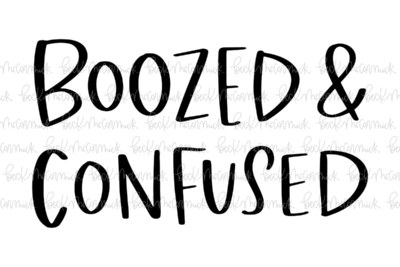 BOOZED &
CONFUSED